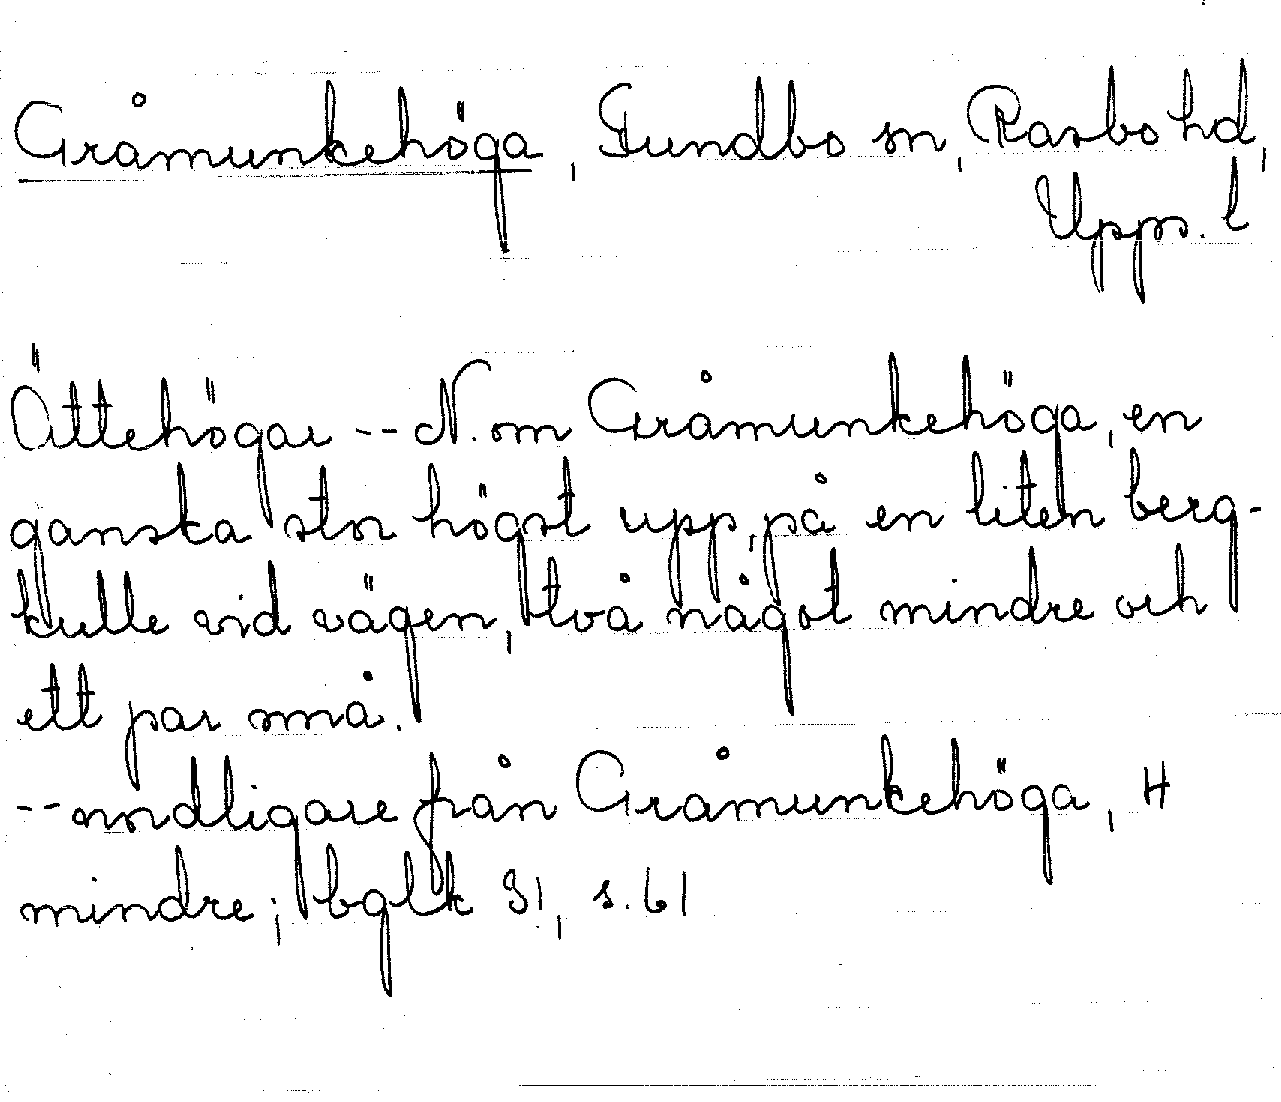 Gråmunkehöga, Funbo sn, Rasbo hd,
Upps. l
Ättehögar -- N. om Gråmunkehöga, en
ganska stor högst upp, på en liten berg-
kulle vid vägen, två något mindre och
ett par små.
-- nordligare från Gråmunkehöga, 4
mindre; bglk 31, s. 61